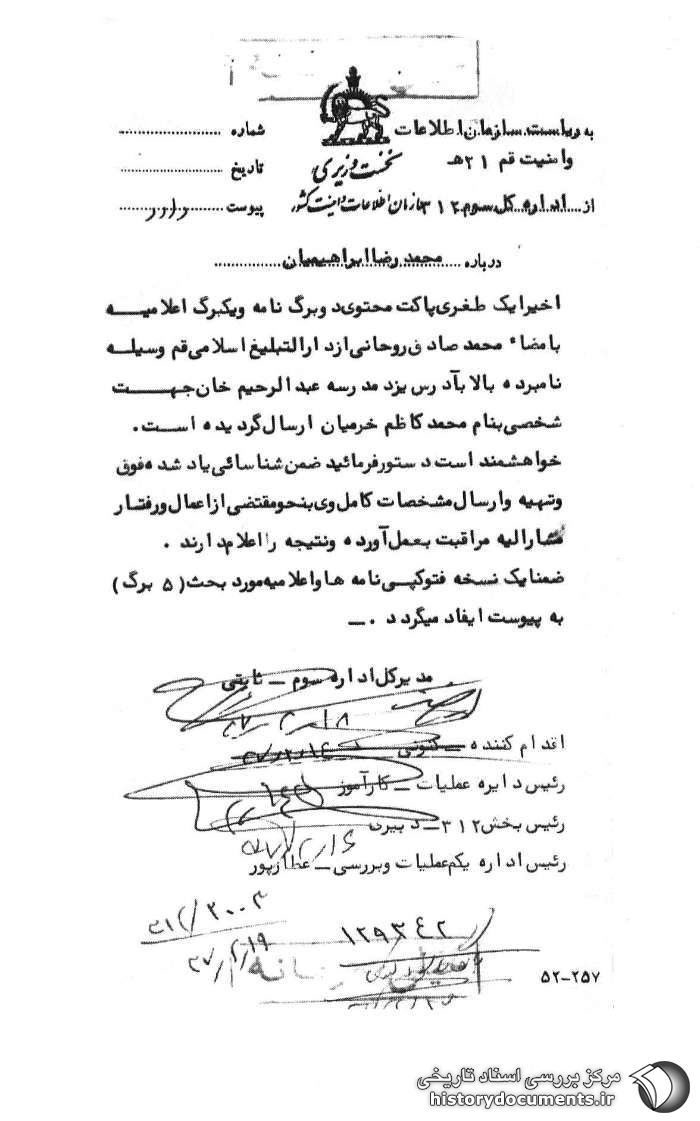 به ریاست سازمان اطلاعات
و امنیت قم ۲۱هـ
از اداره کل سوم ۳۱۲
نخست وزیری
سازمان اطلاعات و امنیت کشور
شماره
تاریخ
پیوست دارد
درباره محمد رضا ابراهیمیان
اخیرا یک طغری پاکت محتوی دو برگ نامه و یکبرگ اعلامیه
با مضاء محمد صادق روحانی از دارالتبلیغ اسلامی قم وسیله
نامبرده بالا بآدرس یزد مدرسه عبدالرحیم خان جهت
شخصی بنام محمد کاظم خرمیان ارسال گردیده است.
خواهشمند است دستور فرمائید ضمن شناسائی یاد شده فوق
و تهیه و ارسال مشخصات کامل وی بنحو مقتضی از اعمال و رفتار
مشارالیه مراقبت بعمل آورده و نتیجه را اعلام دارند .
ضمنا یک نسخه فتوکپی نامه ها و اعلامیه مورد بحث (۵ برگ)
به پیوست ایفاد میگردد .ــ
مدیر کل اداره سوم ــ ثابتی
اقدام کننده ــ کنونی
رئیس دایره عملیات ــ کارآموز
رئیس بخش ۳۱۲ ــ دبیری
رئیس اداره یکم عملیات و بررسی ــ عطارپور
۱۲۹۳۴۲
۵۲-۲۵۷
مرکز بررسی اسناد تاریخی
historydocuments.ir